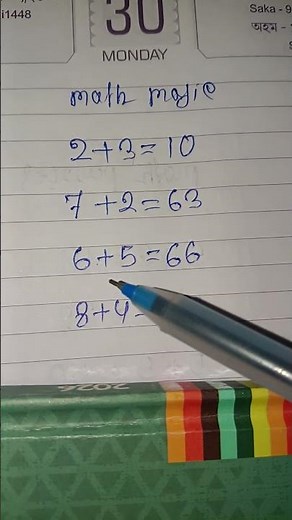 i1448
30
MONDAY
Saka - 9
math magic
2+3=10
7+2=63
6+5=66
8+4=